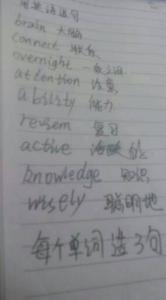 用英语造句
brain 大脑
connect 联系
overnight 一夜之间
attention 注意
ability 能力
review 复习
active 活跃
knowledge 知识
wisely 聪明地
每个单词造3句